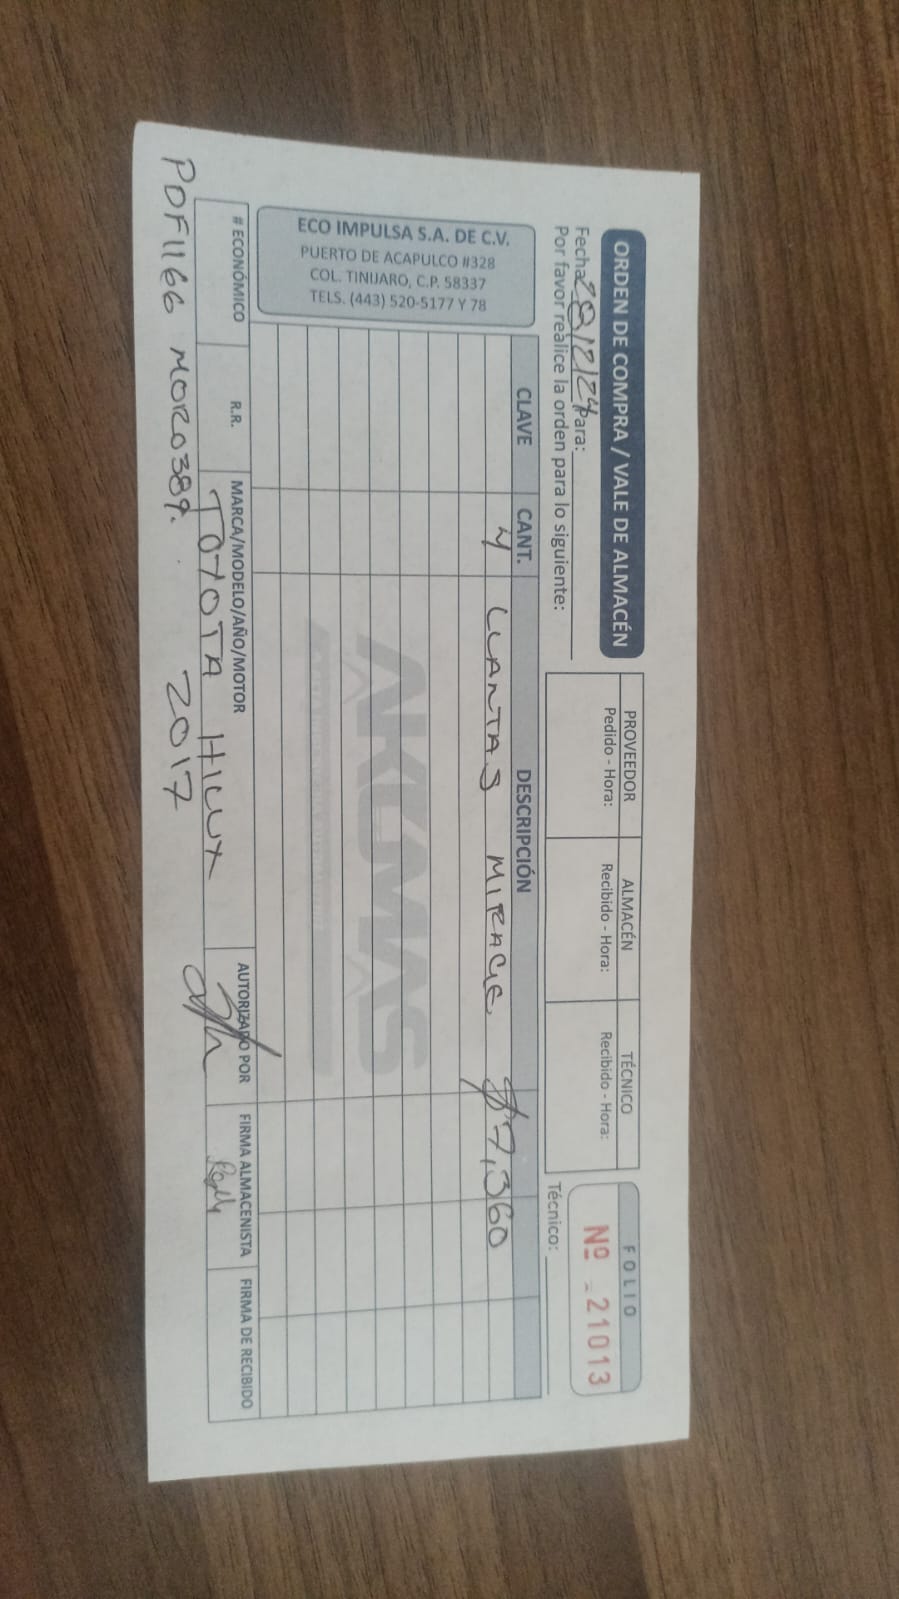 ORDEN DE COMPRA / VALE DE ALMACÉN
Fecha: 28/12/24 Para:
Por favor reàlice la orden para lo siguiente:
PROVEEDOR ALMACÉN TÉCNICO
Pedido - Hora: Recibido - Hora: Recibido - Hora:
FOLIO
Nº 21013
Técnico:
ECO IMPULSA S.A. DE C.V.
PUERTO DE ACAPULCO #328
COL. TINIJARO, C.P. 58337
TELS. (443) 520-5177 Y 78
CLAVE CANT. DESCRIPCIÓN
4 LLANTAS MIRAGE $7,360
AKUMAS
# ECONÓMICO R.R. MARCA/MODELO/AÑO/MOTOR AUTORIZADO POR FIRMA ALMACENISTA FIRMA DE RECIBIDO
TOYOTA HILUX
PDF1166 MORO389. 2017